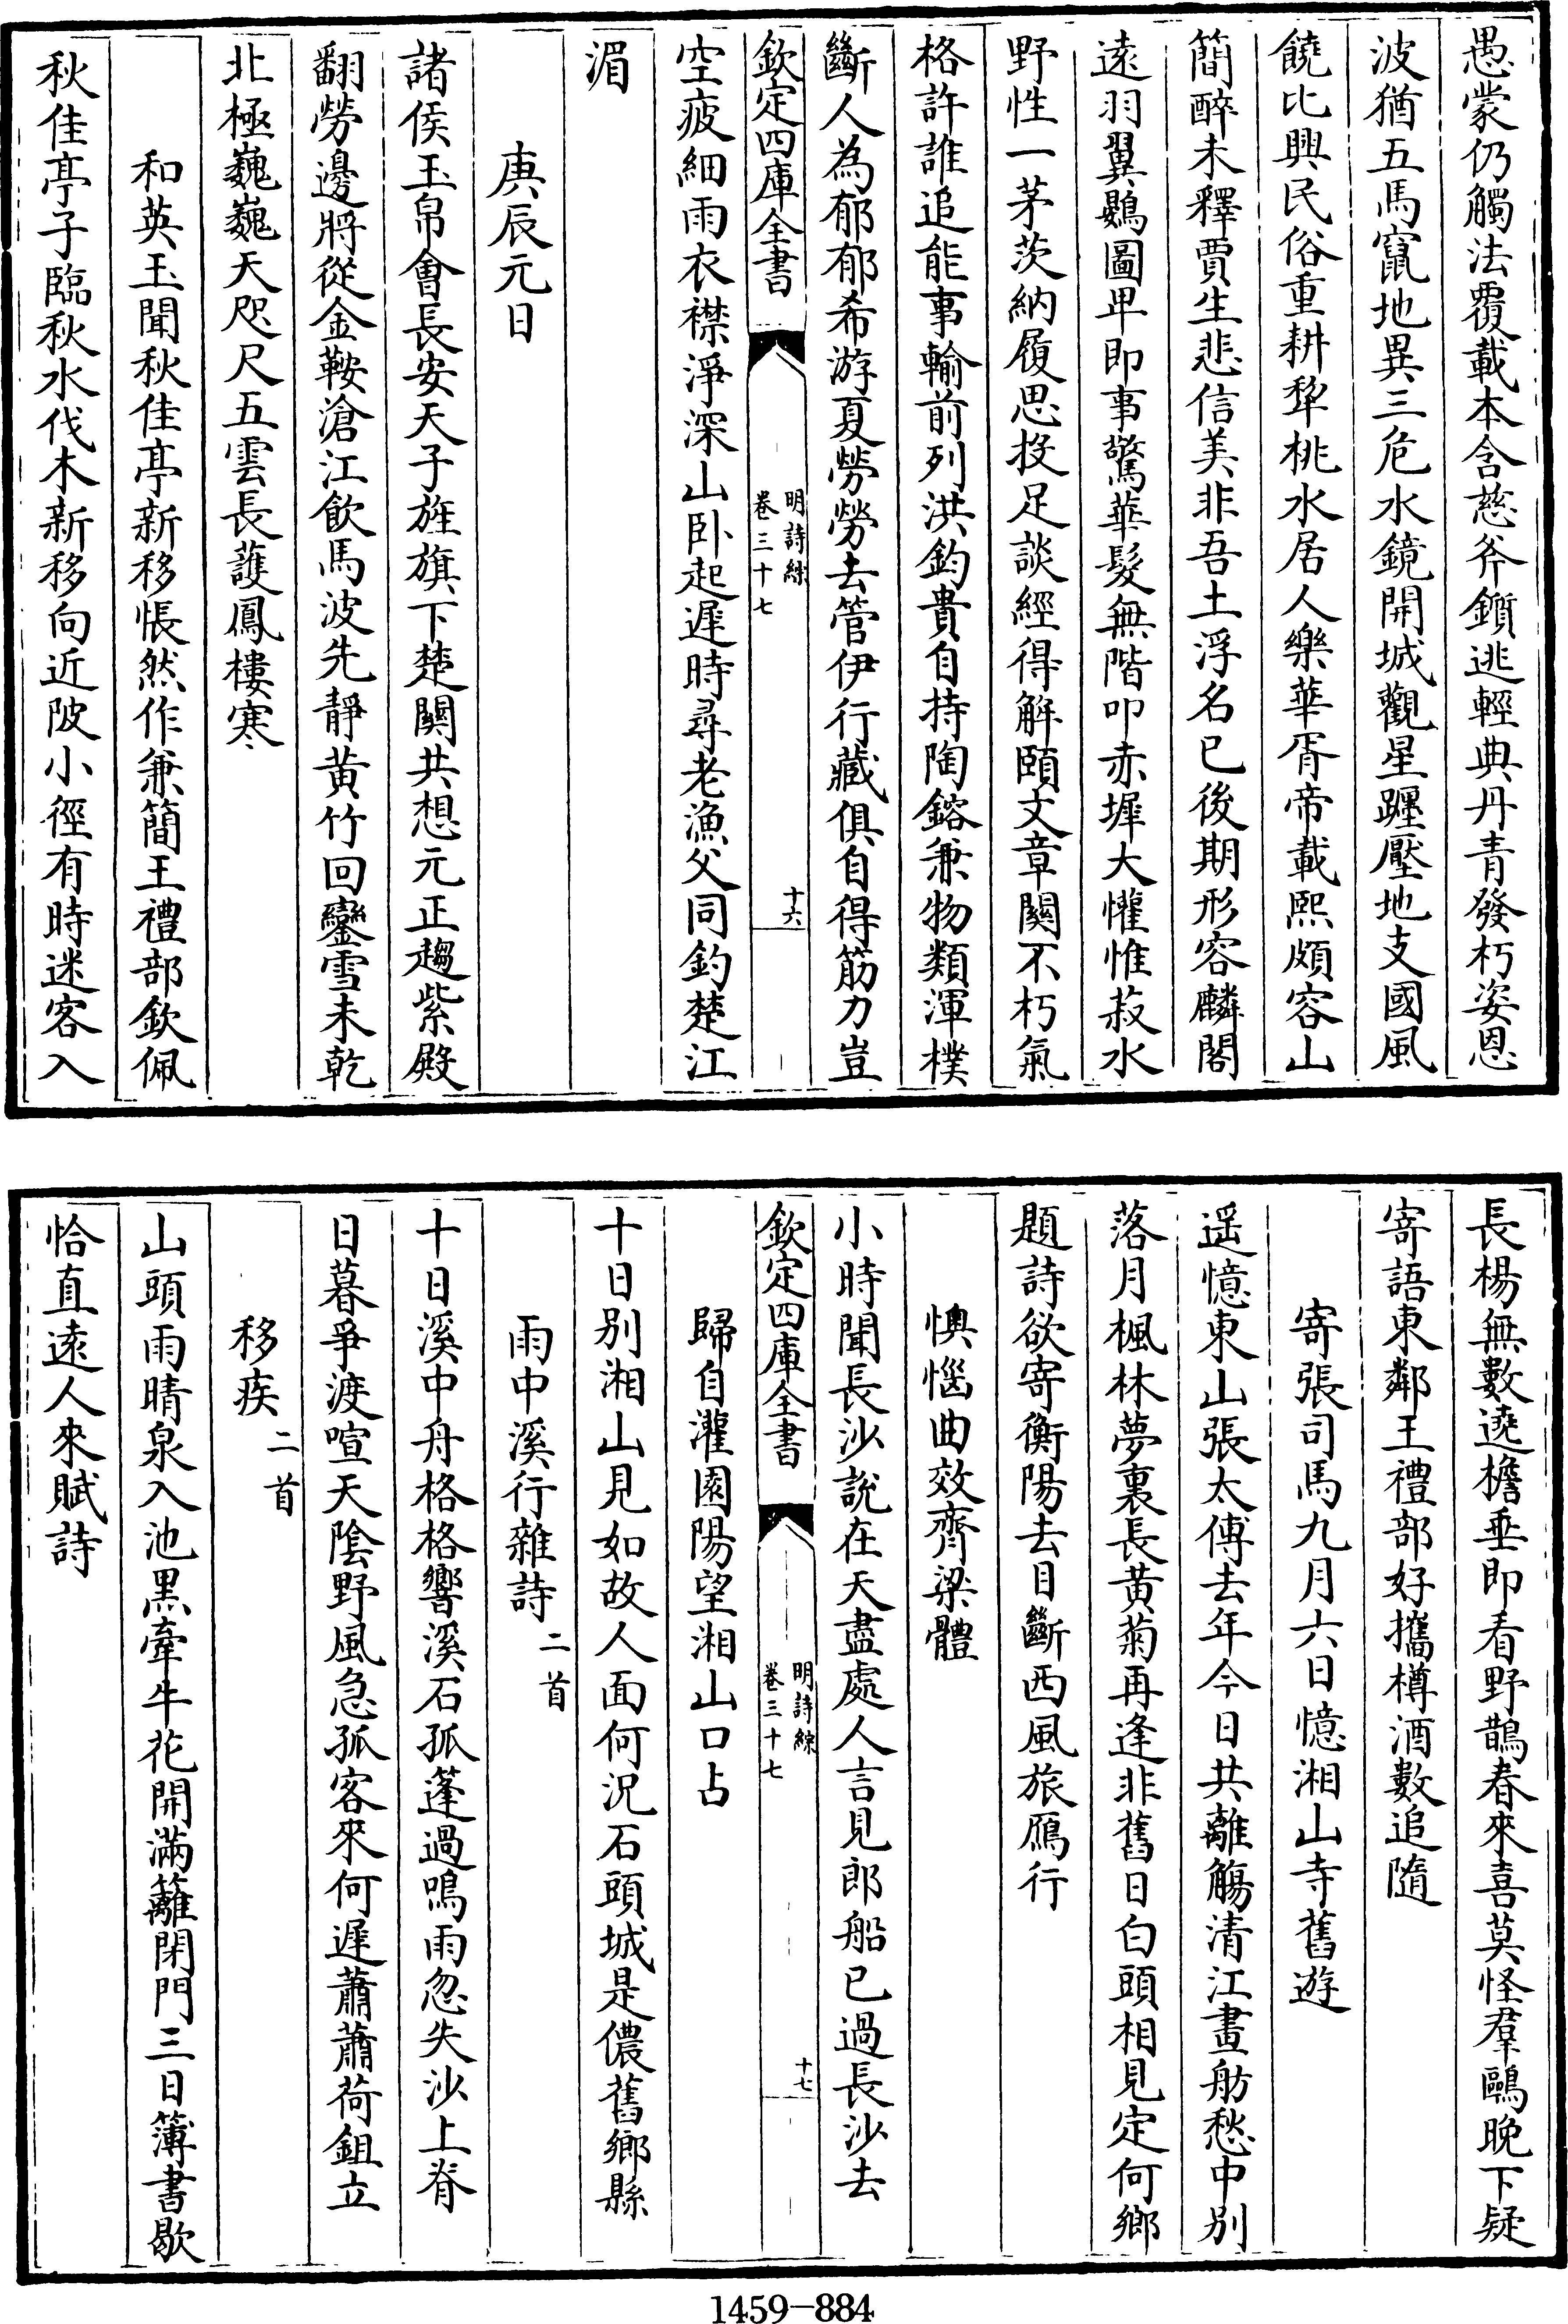 愚蒙仍觸法覆載本含慈斧鑕逃輕典丹青發朽姿恩
波猶五馬竄地異三危水鏡開城觀星躔壓地支國風
饒比興民俗重耕犂桃水居人樂華胥帝載熙頗容山
簡醉未釋賈生悲信美非吾土浮名已後期形容麟閣
遠羽翼鷃圖卑即事驚華髮無階叩赤墀大懽惟菽水
野性一茅茨納履思投足談經得解頤文章關不朽氣
格許誰追能事輸前列洪鈞貴自持陶鎔兼物類渾樸
斷人為郁郁希游夏勞勞去管伊行藏俱自得筋力豈
欽定四庫全書
明詩綜
卷三十七
十六
空疲細雨衣襟淨深山卧起遲時尋老漁父同釣楚江
湄
庚辰元日
諸侯玉帛會長安天子旌旗下楚關共想元正趨紫殿
翻勞邊將從金鞍滄江飲馬波先靜黄竹回鑾雪未乾
北極巍巍天咫尺五雲長護鳳樓寒
和英玉聞秋佳亭新移悵然作兼簡王禮部欽佩
秋佳亭子臨秋水伐木新移向近陂小徑有時迷客入
長楊無數遶檐垂即看野鵲春來喜莫怪羣鷗晚下疑
寄語東鄰王禮部好攜樽酒數追隨
寄張司馬九月六日憶湘山寺舊遊
遥憶東山張太傅去年今日共離觴清江畫舫愁中别
落月楓林夢裏長黄菊再逢非舊日白頭相見定何鄉
題詩欲寄衡陽去目斷西風旅鴈行
懊惱曲效齊梁體
小時聞長沙說在天盡處人言見郎船已過長沙去
欽定四庫全書
明詩綜
卷三十七
十七
歸自灌園陽望湘山口占
十日别湘山見如故人面何況石頭城是儂舊鄉縣
雨中溪行雜詩二首
十日溪中舟格格響溪石孤蓬過鳴雨忽失沙上脊
日暮爭渡喧天陰野風急孤客來何遲蕭蕭荷鉏立
移疾二首
山頭雨晴泉入池黒牽牛花開滿籬閉門三日簿書歇
恰直遠人來賦詩
1459-884